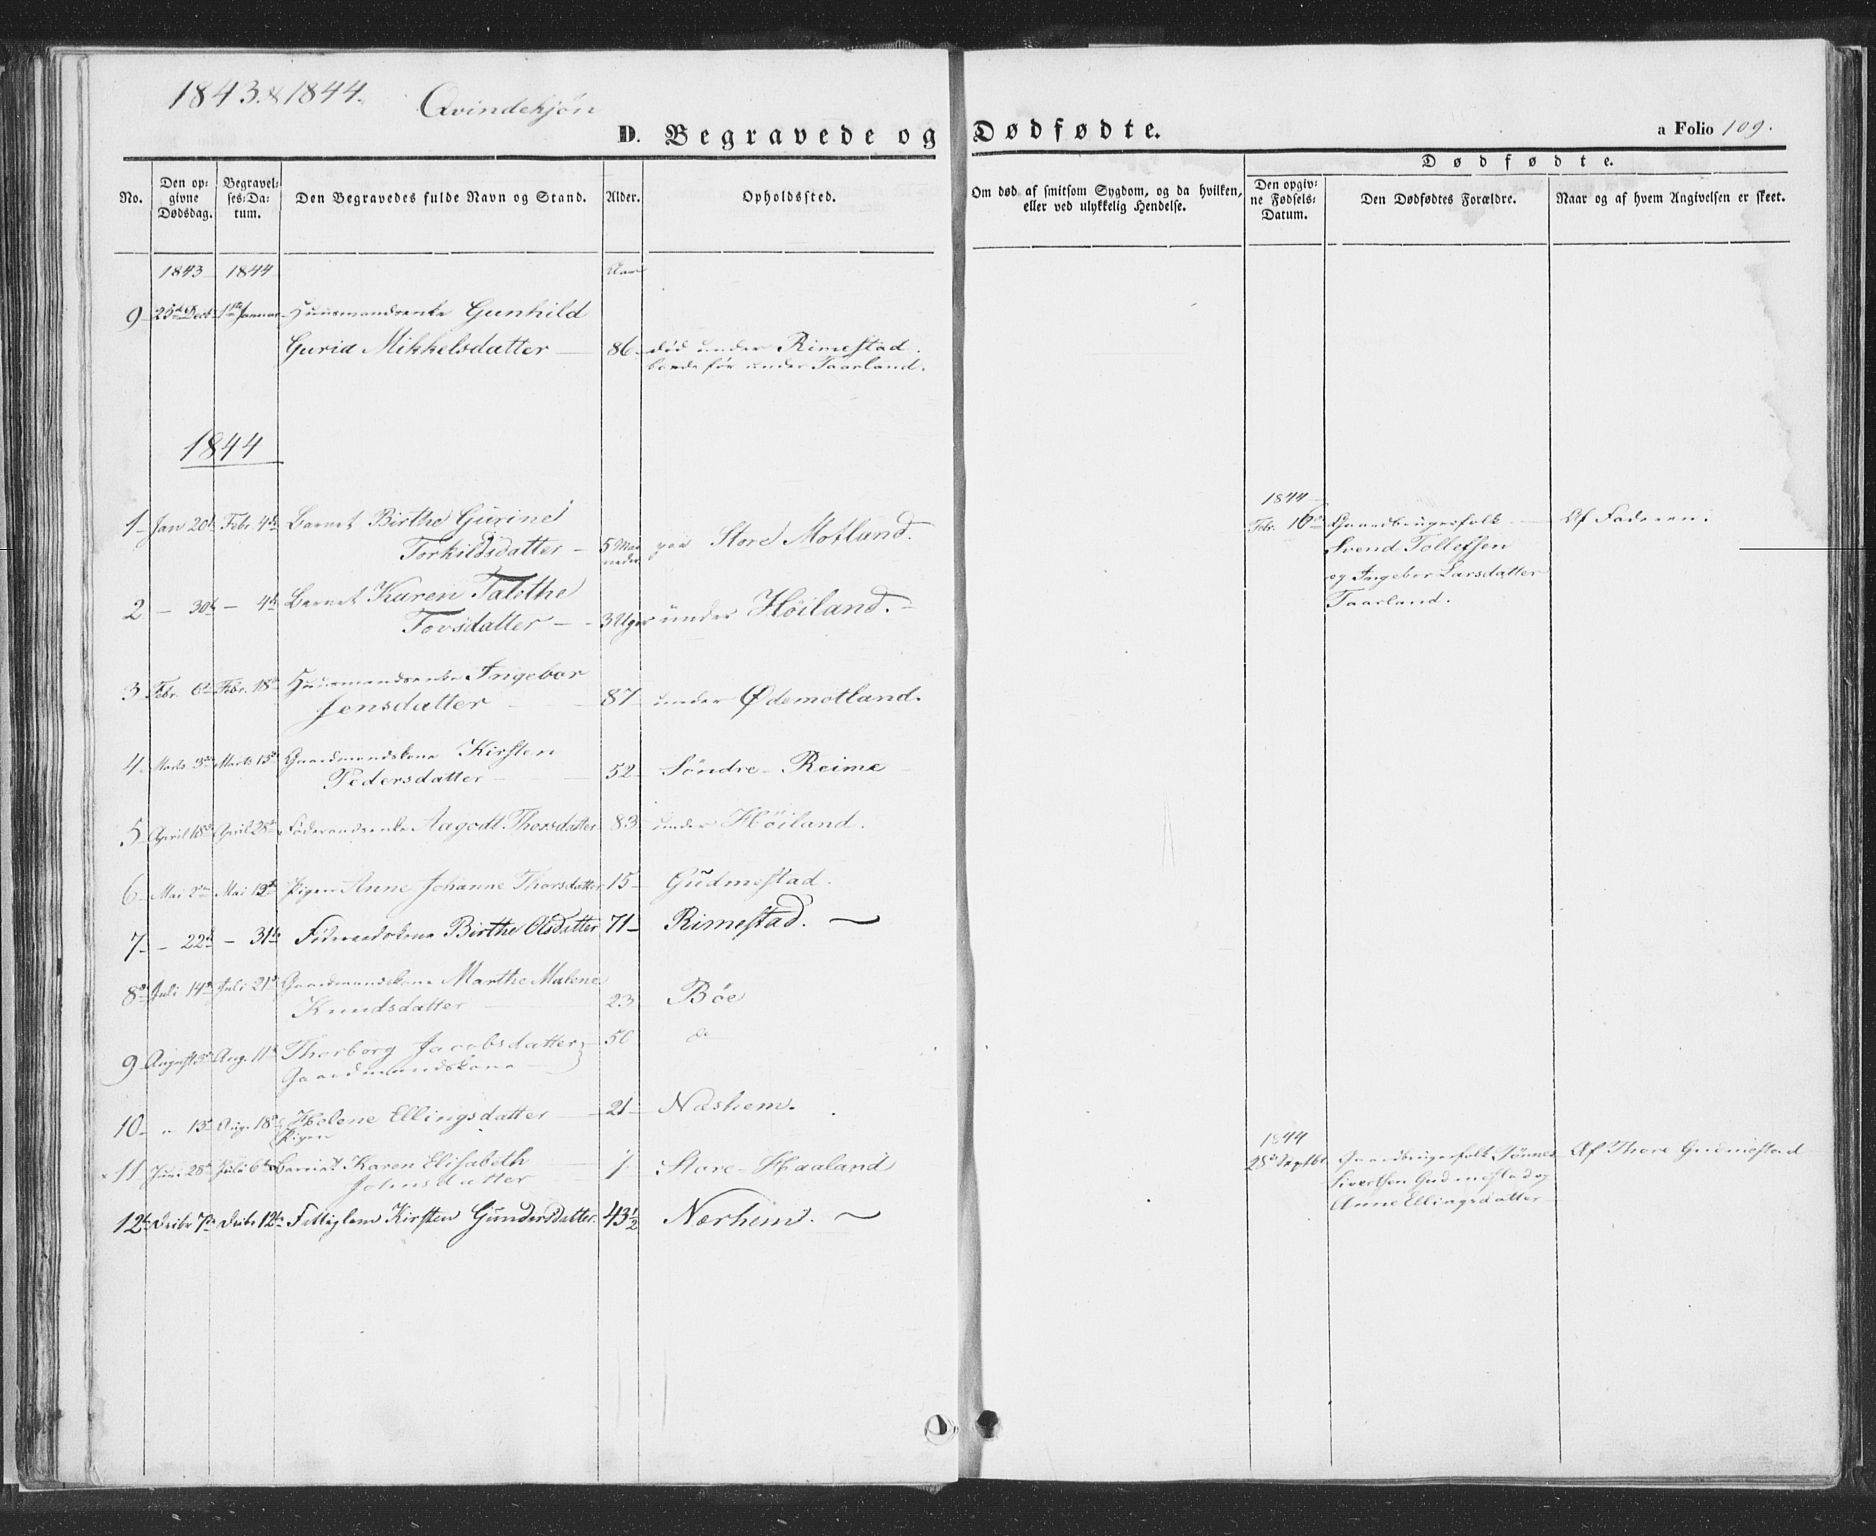 1843 & 1844. Qvindekjøn
D. Begravede og Dødfødte.
a Folio 109.
No.
Den opgivne Dødsdag.
Begravelses-Datum.
Den Begravedes fulde Navn og Stand.
Alder.
Opholdssted.
Om død af smitsom Sygdom, og da hvilken,
eller ved ulykkelig Hendelse.
Dødfødte.
Den opgivne Fødsels-Datum.
Den Dødfødtes Forældre.
Naar og af hvem Angivelsen er skeet.
1843 1844 Aar
9 25de Decbr 1ste Januar Huusmandsenke Gunhild
Gurid Mikkelsdatter 86 død under Rimestad.
boede før under Taarland.
1844
1 Jan 20de Febr. 4de Barnet Birthe Gurine
Torkildsdatter 5 Maaneder paa Store Motland.
2 - 30te - 4de Barnet Karen Talethe
Tovsdatter 3 Uger under Høiland.
3 Febr. 6te Febr. 18de Huusmandsenke Ingebor
Jonsdatter 87 under Ødemotland.
4 Marts 3die Marts 15de Gaardmandskone Kirsten
Pedersdatter 52 Søndre Reime
5 April 18de April 28de Føderaadsenke Aagodt Thorsdatter 83 under Høiland.
6 Mai 2den Mai 12te Pigen Anne Johanne Thorsdatter 15 Gudmestad.
7 - 22de - 31te Føderaadskone Birthe Olsdatter 71 Rimestad.
8de Juli 14de Juli 21de Gaardmandskone Marthe Malene
Knudsdatter 23 Bøe
9 August 3die Aug. 11te Thorborg Jacobsdatter 50 do
Gaardmandskone
10 " 13de Aug. 18de Helene Ellingsdatter 21 Næshem.
Pigen
11 Juni 28de Juli 6te Barnet Karen Elisabeth 7 Store-Haaland
Johnsdatter
12te Decbr 7de Decbr 12te Fattiglem Kirsten Gundersdatter 43½ Nærhem.
1844
Febr. 16de Gaardbrugerfolk Af Faderen.
Svend Tollefsen
og Ingebor Larsdatter
Taarland.
1844
28de Septbr. Gaardbrugerfolk Tønnes Af Thore Gudmestad
Sivertsen Gudmestad og
Anne Ellingsdatter